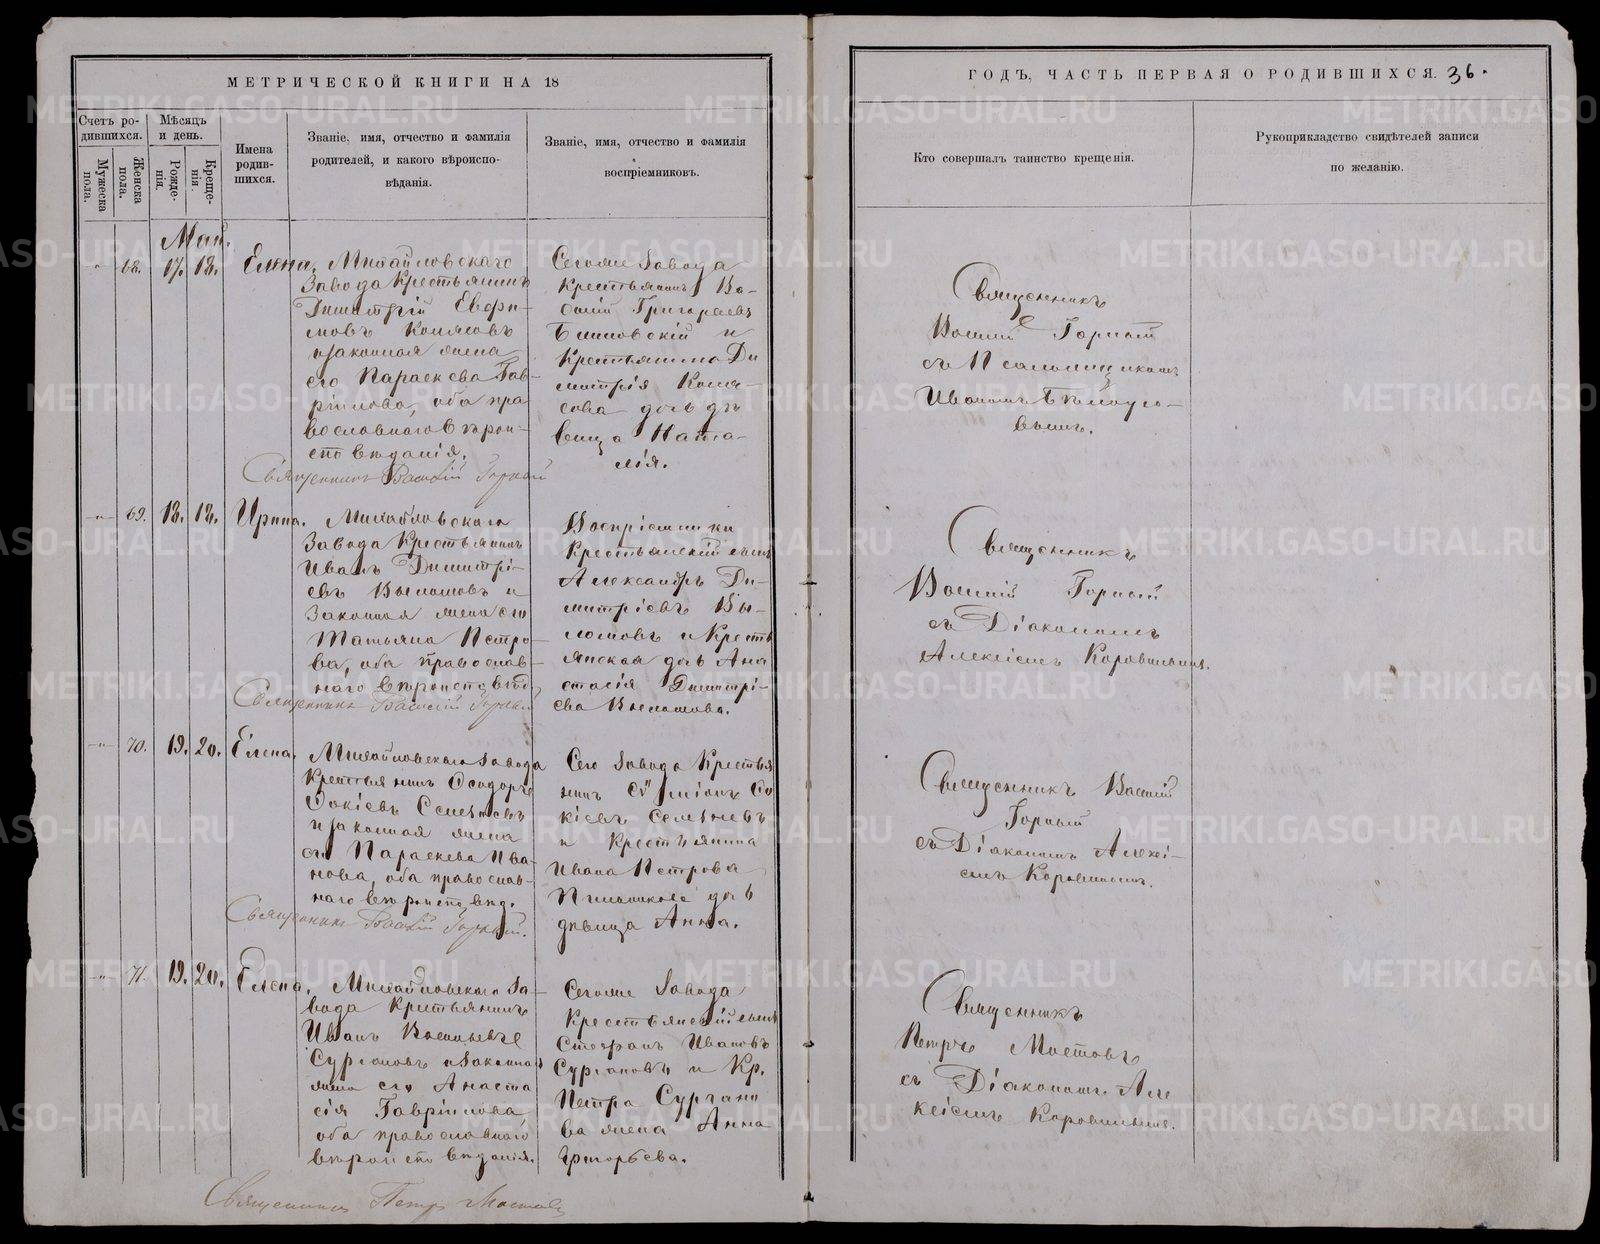 МЕТРИЧЕСКОЙ КНИГИ НА 18
Счетъ родившихся.
Мужеска пола.
Женска пола.
Мѣсяцъ и день.
Рожденія.
Крещенія.
Имена родившихся.
Званіе, имя, отчество и фамилія
родителей, и какого вѣроиспо-
вѣданія.
Званіе, имя, отчество и фамилія
воспріемниковъ.
ГОДЪ, ЧАСТЬ ПЕРВАЯ О РОДИВШИХСЯ. 36.
Кто совершалъ таинство крещенія.
Рукоприкладство свидѣтелей записи
по желанію.
Май.
68. 17. 18. Елена.
Михайловскаго
Завода Крестьянинъ
Димитрій Евфи-
мовъ
и законная жена
его Параскева Гав-
рилова, оба пра
вославнаго вѣрои-
сповѣданія.
Священникъ Василій Горный
Сегоже Завода
Крестьянинъ Ва-
силій Григорьевъ
и
Крестьянина Ди
митрія
дочь дѣ
вица Ната-
лія.
Священникъ
Василій Горный
съ Псаломщикомъ
Иваномъ Бѣлоусо-
вымъ.
69. 18. 18. Ирина.
Михайловскаго
Завода Крестьянинъ
Иванъ Димитрі-
евъ и
Законная жена его
Татьяна Петро-
ва, оба православ-
наго вѣроисповѣд
Священникъ Василій Горный
Воспріемники
Крестьянскій сынъ
Александръ Ди-
митріевъ
и Кресть
янская дочь Ана
стасія Димитрі-
ева
Священникъ
Василій Горный
съ Діакономъ
Алексіемъ Коровинымъ.
70. 19. 20. Елена.
Михайловскаго Завода
Крестьянинъ Ѳеодоръ
и законная жена
его Параскева Ива-
нова, оба православ-
наго вѣроисповѣд.
Священникъ Василій Горный.
Сего Завода Крестья
нинъ
и Крестьянина
Ивана Петрова
дочь
дѣвица Анна.
Священникъ Василій
Горный
съ Діакономъ Алексі-
емъ Коровинымъ.
71. 19. 20. Елена.
Михайловскаго За-
вода Крестьянинъ
Иванъ Васильевъ
Сургановъ и Законная
жена его Анаста
сія Гавріилова
оба православнаго
вѣроисповѣданія.
Священникъ Петръ Мостовъ
Сегоже Завода
Крестьянскій сынъ
Стефанъ Ивановъ
Сургановъ и Кр.
Петра Сургано
ва жена Анна
Григорьева.
Священникъ
Петръ Мостовъ
съ Діакономъ Але
ксіемъ Коровинымъ.
METRIKI.GASO-URAL.RU